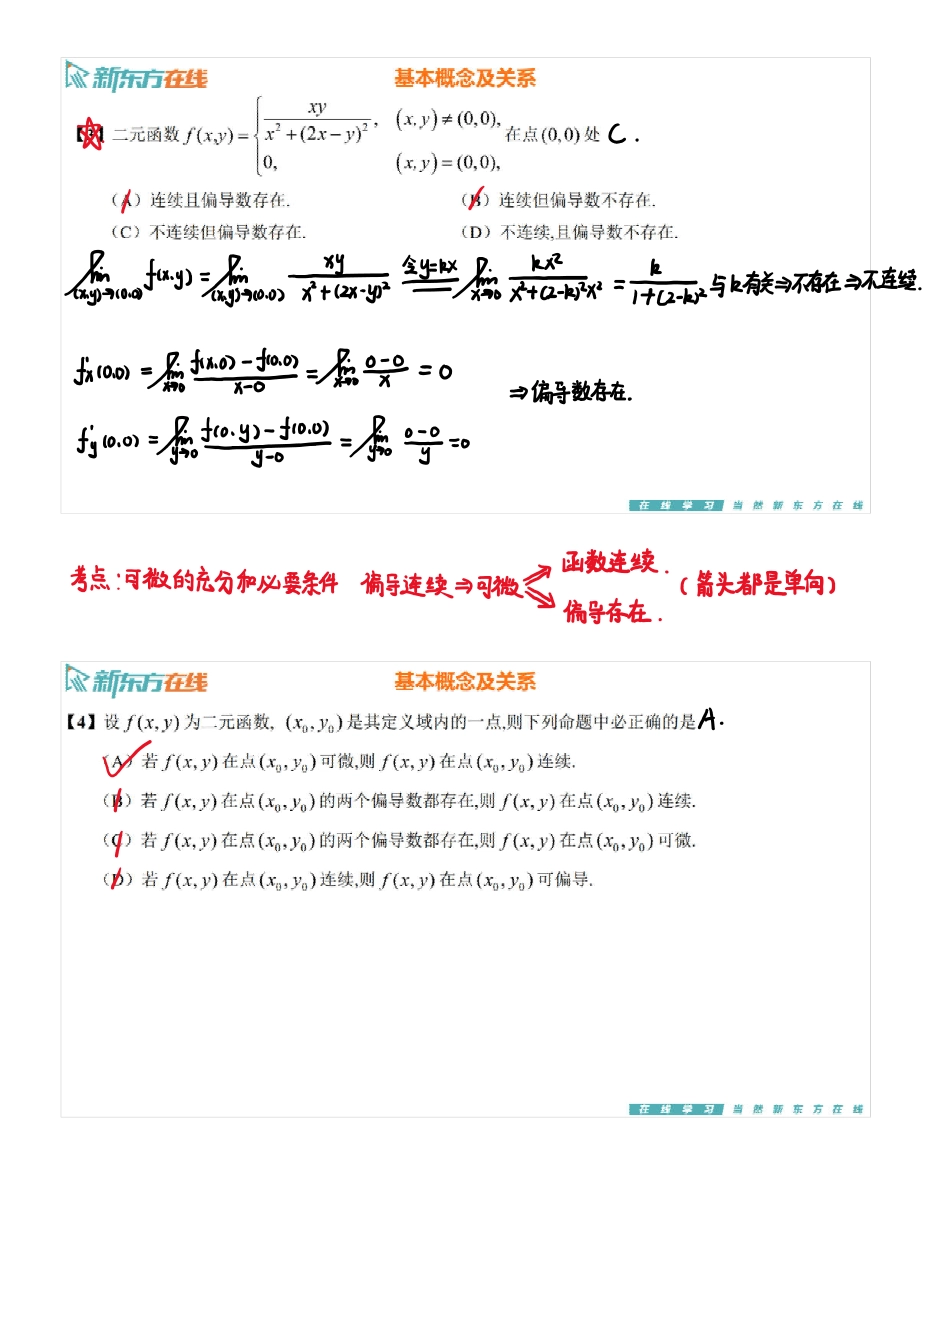 新东方在线 基本概念及关系
【3】二元函数 f(x,y) = { xy / (x² + (2x − y)²), (x, y) ≠ (0,0), 0, (x, y) = (0,0), 在点(0,0)处 C.
(A)连续且偏导数存在. (B)连续但偏导数不存在.
(C)不连续但偏导数存在. (D)不连续,且偏导数不存在.
lim (x,y)→(0,0) f(x,y) = lim (x,y)→(0,0) xy / (x²+(2x-y)²) 令y=kx lim x→0 kx² / (x²+(2-k)²x²) = k / (1+(2-k)²) 与k有关⇒不存在⇒不连续.
f'x(0,0) = lim x→0 (f(x,0)-f(0,0)) / (x-0) = lim x→0 (0-0)/x = 0
⇒偏导数存在.
f'y(0,0) = lim y→0 (f(0,y)-f(0,0)) / (y-0) = lim y→0 (0-0)/y =0
在线学习 当然新东方在线
函数连续.
考点:可微的充分和必要条件 偏导连续⇒可微 (箭头都是单向)
偏导存在.
新东方在线 基本概念及关系
【4】设 f(x, y) 为二元函数, (x₀, y₀) 是其定义域内的一点,则下列命题中必正确的是 A.
(A)若 f(x, y) 在点 (x₀, y₀) 可微,则 f(x, y) 在点 (x₀, y₀) 连续.
(B)若 f(x, y) 在点 (x₀, y₀) 的两个偏导数都存在,则 f(x, y) 在点 (x₀, y₀) 连续.
(C)若 f(x, y) 在点 (x₀, y₀) 的两个偏导数都存在,则 f(x, y) 在点 (x₀, y₀) 可微.
(D)若 f(x, y) 在点 (x₀, y₀) 连续,则 f(x, y) 在点 (x₀, y₀) 可偏导.
在线学习 当然新东方在线